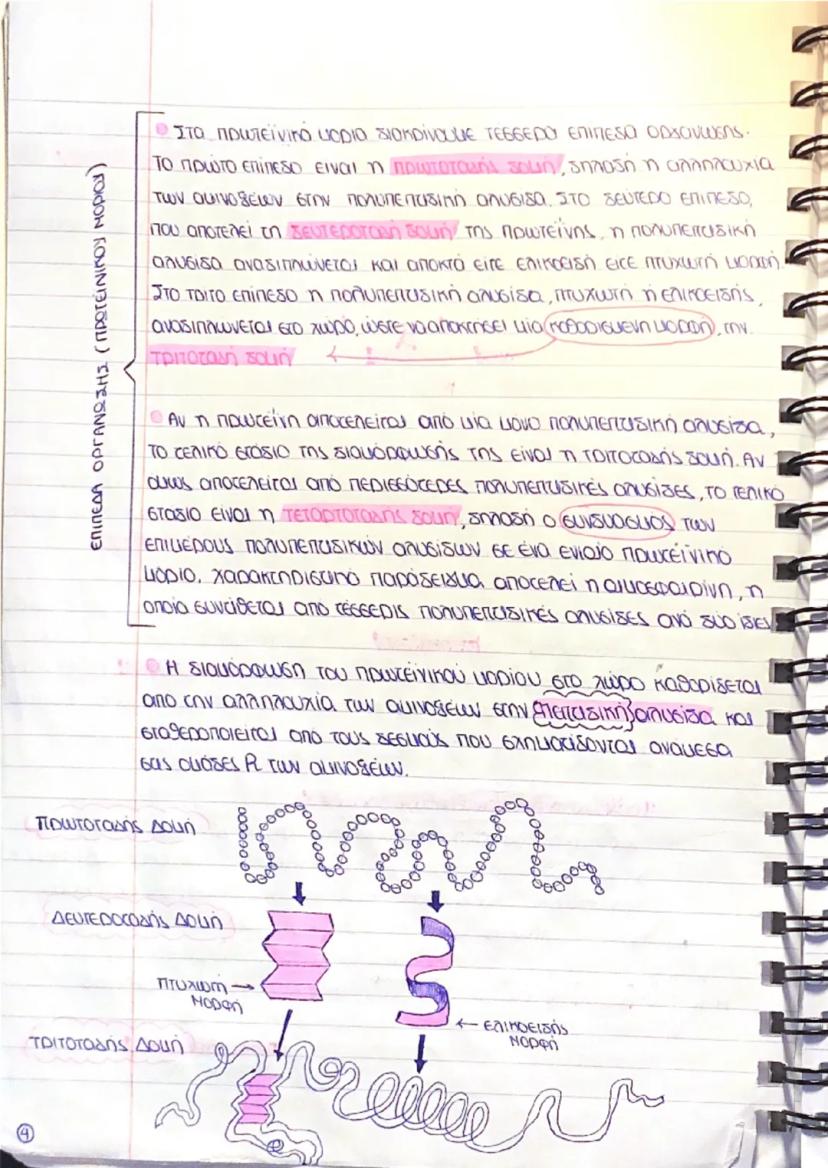 ΕΠΙΠΕΔΑ ΟΡΓΑΝΩΣΗΣ (ΠΡΩΤΕΪΝΙΚΟΥ ΜΟΡΙΟΥ)
Στα πρωτεϊνικά μόρια διακρίνουμε τέσσερα επίπεδα οργάνωσης.
Το πρώτο επίπεδο είναι η πρωτοταγής δομή, δηλαδή η αλληλουχία
των αμινοξέων στην πολυπεπτιδική αλυσίδα. Στο δεύτερο επίπεδο,
που αποτελεί τη δευτεροταγή δομή της πρωτεΐνης, η πολυπεπτιδική
αλυσίδα αναδιπλώνεται και αποκτά είτε ελικοειδή είτε πτυχωτή μορφή.
Στο τρίτο επίπεδο η πολυπεπτιδική αλυσίδα, πτυχωτή ή ελικοειδής,
αναδιπλώνεται στο χώρο, ώστε να αποκτήσει μία καθορισμένη μορφή, την
τριτοταγή δομή
Αν η πρωτεΐνη αποτελείται από μία μόνο πολυπεπτιδική αλυσίδα,
το τελικό στάδιο της διαμόρφωσής της είναι η τριτοταγής δομή. Αν
όμως αποτελείται από περισσότερες πολυπεπτιδικές αλυσίδες, το τελικό
στάδιο είναι η τεταρτοταγής δομή, δηλαδή ο συνδυασμός των
επιμέρους πολυπεπτιδικών αλυσίδων σε ένα ενιαίο πρωτεϊνικό
μόριο. Χαρακτηριστικό παράδειγμα αποτελεί η αιμοσφαιρίνη, η
οποία συντίθεται από τέσσερις πολυπεπτιδικές αλυσίδες ανά δύο ίδιες
Η διαμόρφωση του πρωτεϊνικού μορίου στο χώρο καθορίζεται
από την αλληλουχία των αμινοξέων στην πεπτιδική αλυσίδα και
σταθεροποιείται από τους δεσμούς που σχηματίζονται ανάμεσα
στις ομάδες R των αμινοξέων.
Πρωτοταγής Δομή
Δευτεροταγής Δομή
Πτυχωτή
Μορφή
Ελικοειδής
Μορφή
Τριτοταγής Δομή
4